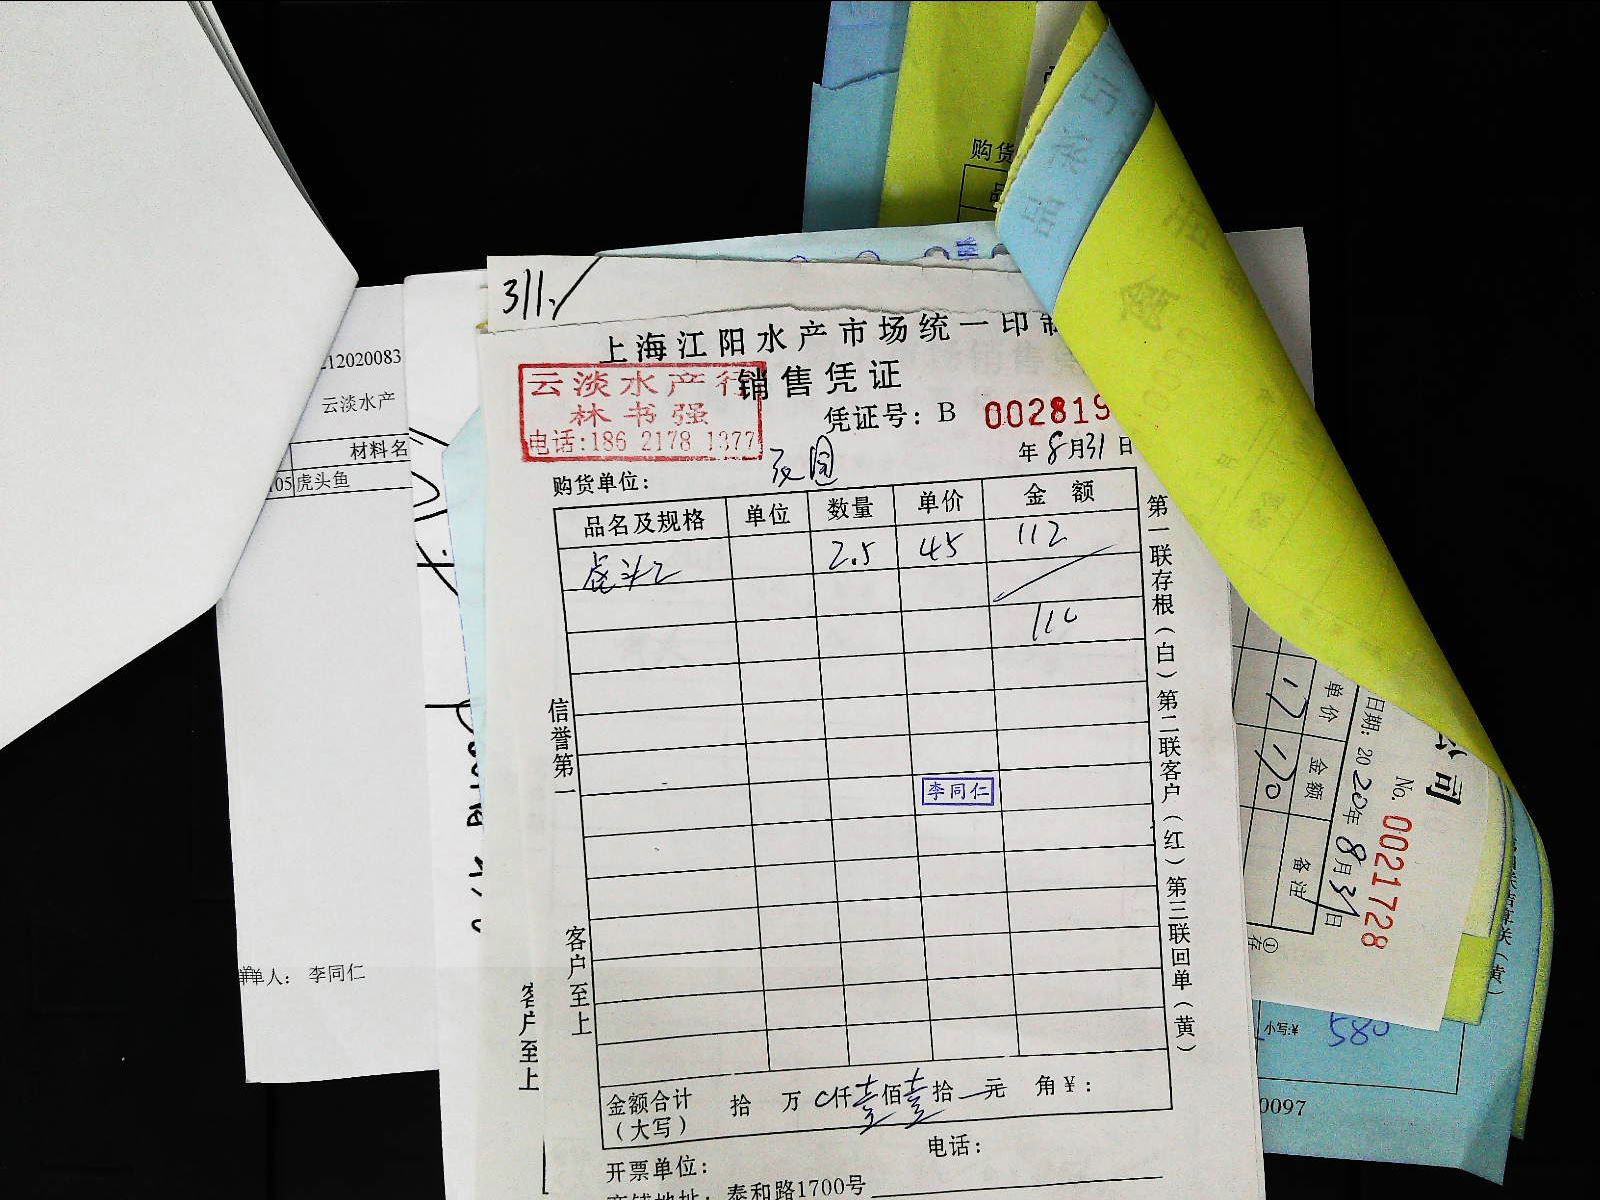 购货
311.
上海江阳水产市场统一印制
销售凭证
云淡水产行
林书强
电话:186 2178 1377
凭证号: B 002819
年8月31日
购货单位:
品名及规格 单位 数量 单价 金额
虎头 2.5 45 112
110
李同仁
信誉第一
客户至上
第一联存根(白)第二联客户(红)第三联回单(黄)
金额合计(大写) 拾 万 仟壹佰壹拾 元 角¥:
电话:
开票单位:
泰和路1700号
12020083
云淡水产
材料名
05 虎头鱼
单人: 李同仁
客户至上
公司
No. 0021728
日期: 2020年8月31日
单价 金额 备注
17 170
小写:¥ 580
0097